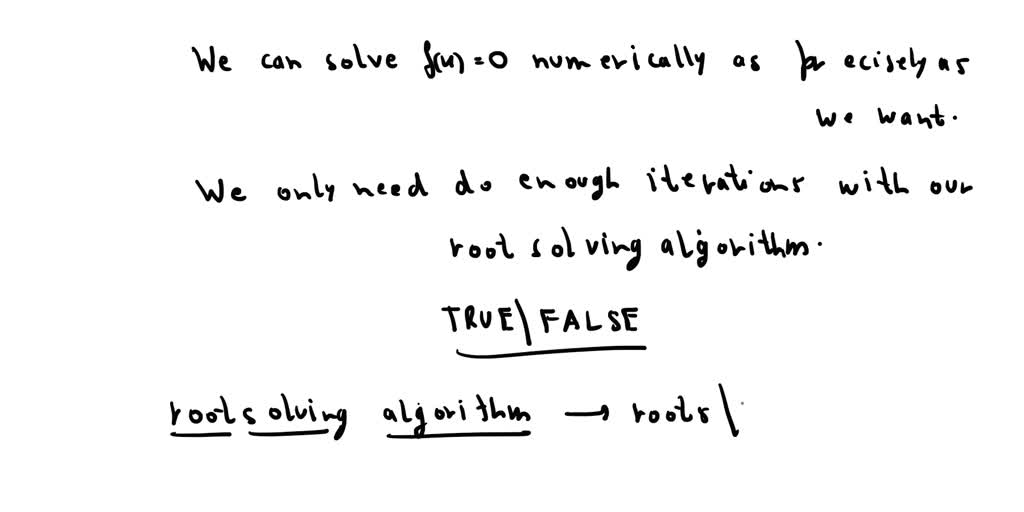 We can solve f(x)=0 numerically as precisely as
we want.
We only need do enough iterations with our
root solving algorithm.
TRUE\FALSE
root solving algorithm → roots\